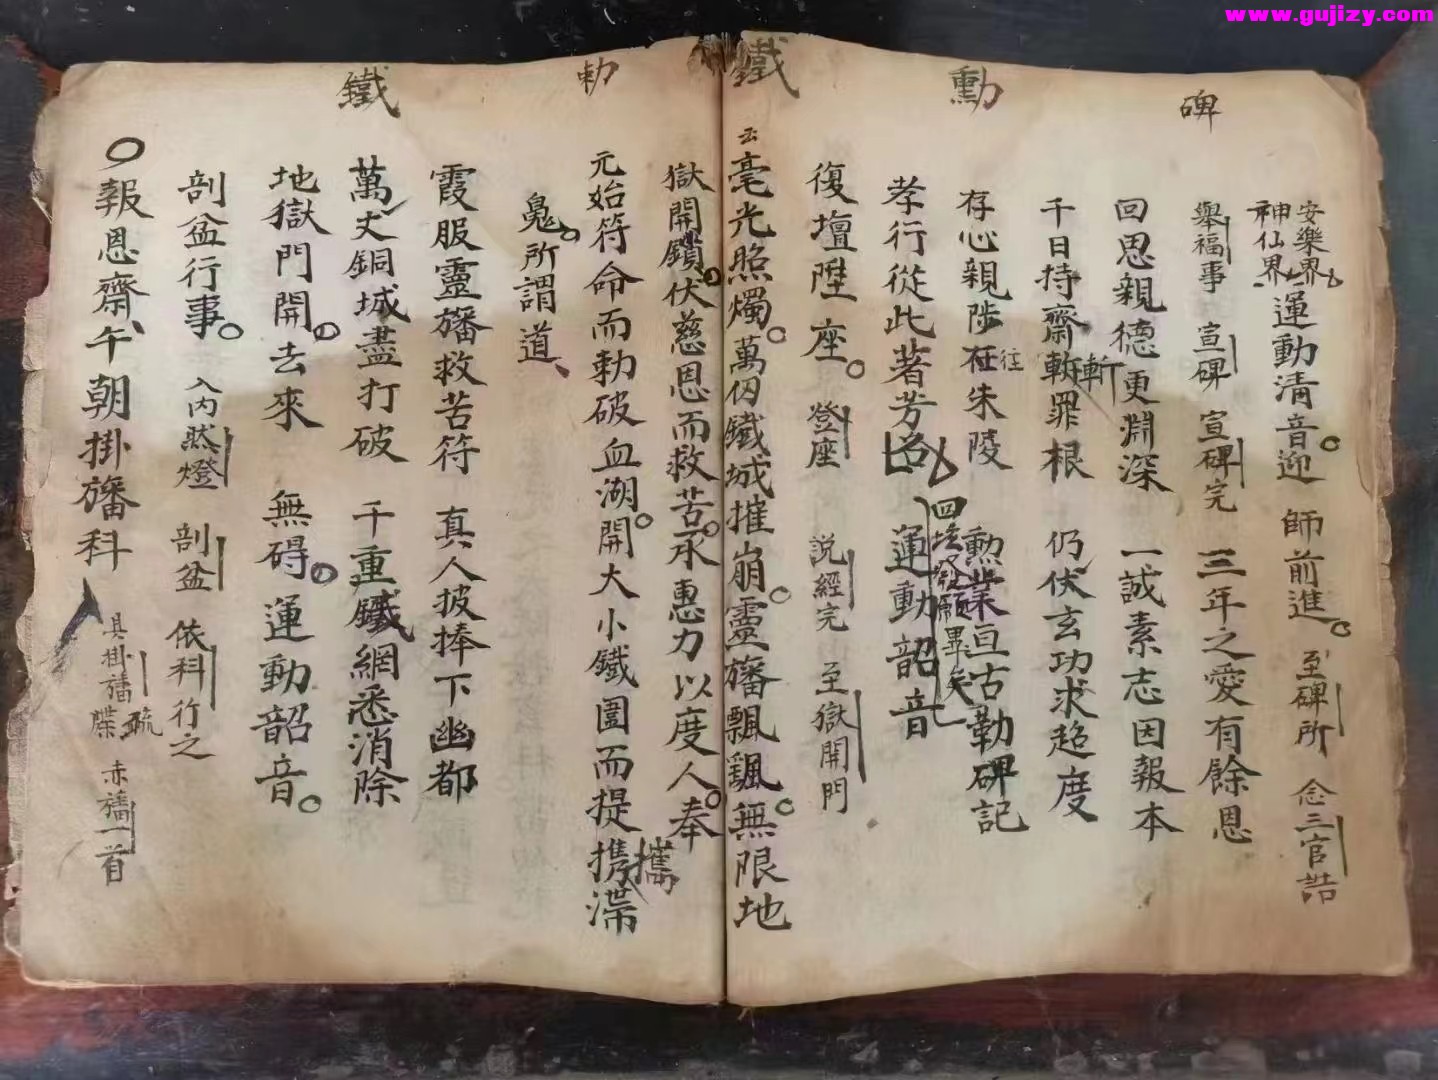 www.gujizy.com
碑
勳
鐵
勅
鐵
安樂界
神仙界
運動清音迎 師前進 至碑所 念三官誥
舉福事 宣碑 宣碑完 三年之愛有餘恩
回思親德更淵深 一誠素志因報本
千日持齋斬罪根 仍伏玄功求超度
斬
存心親陟在朱陵 勲業亘古勒碑記
往
孝行從此著芳名 運動韶音
畢矣
復壇陞座 登座 説經完 至獄開門
云毫光照燭萬仭鐵城摧崩靈旛飄颻無限地
獄開鎖伏慈恩而救苦承惠力以度人奉
元始符命而勅破血湖開大小鐵圍而提携滯
攜
魂所謂道
霞服靈旛救苦符 真人披捧下幽都
萬丈銅城盡打破 千重鐵網悉消除
地獄門開去來 無碍運動韶音
剖盆行事 入内然燈 剖盆 依科行之
報恩齋午朝掛旛科 具掛旛牒 疏 赤旛一首